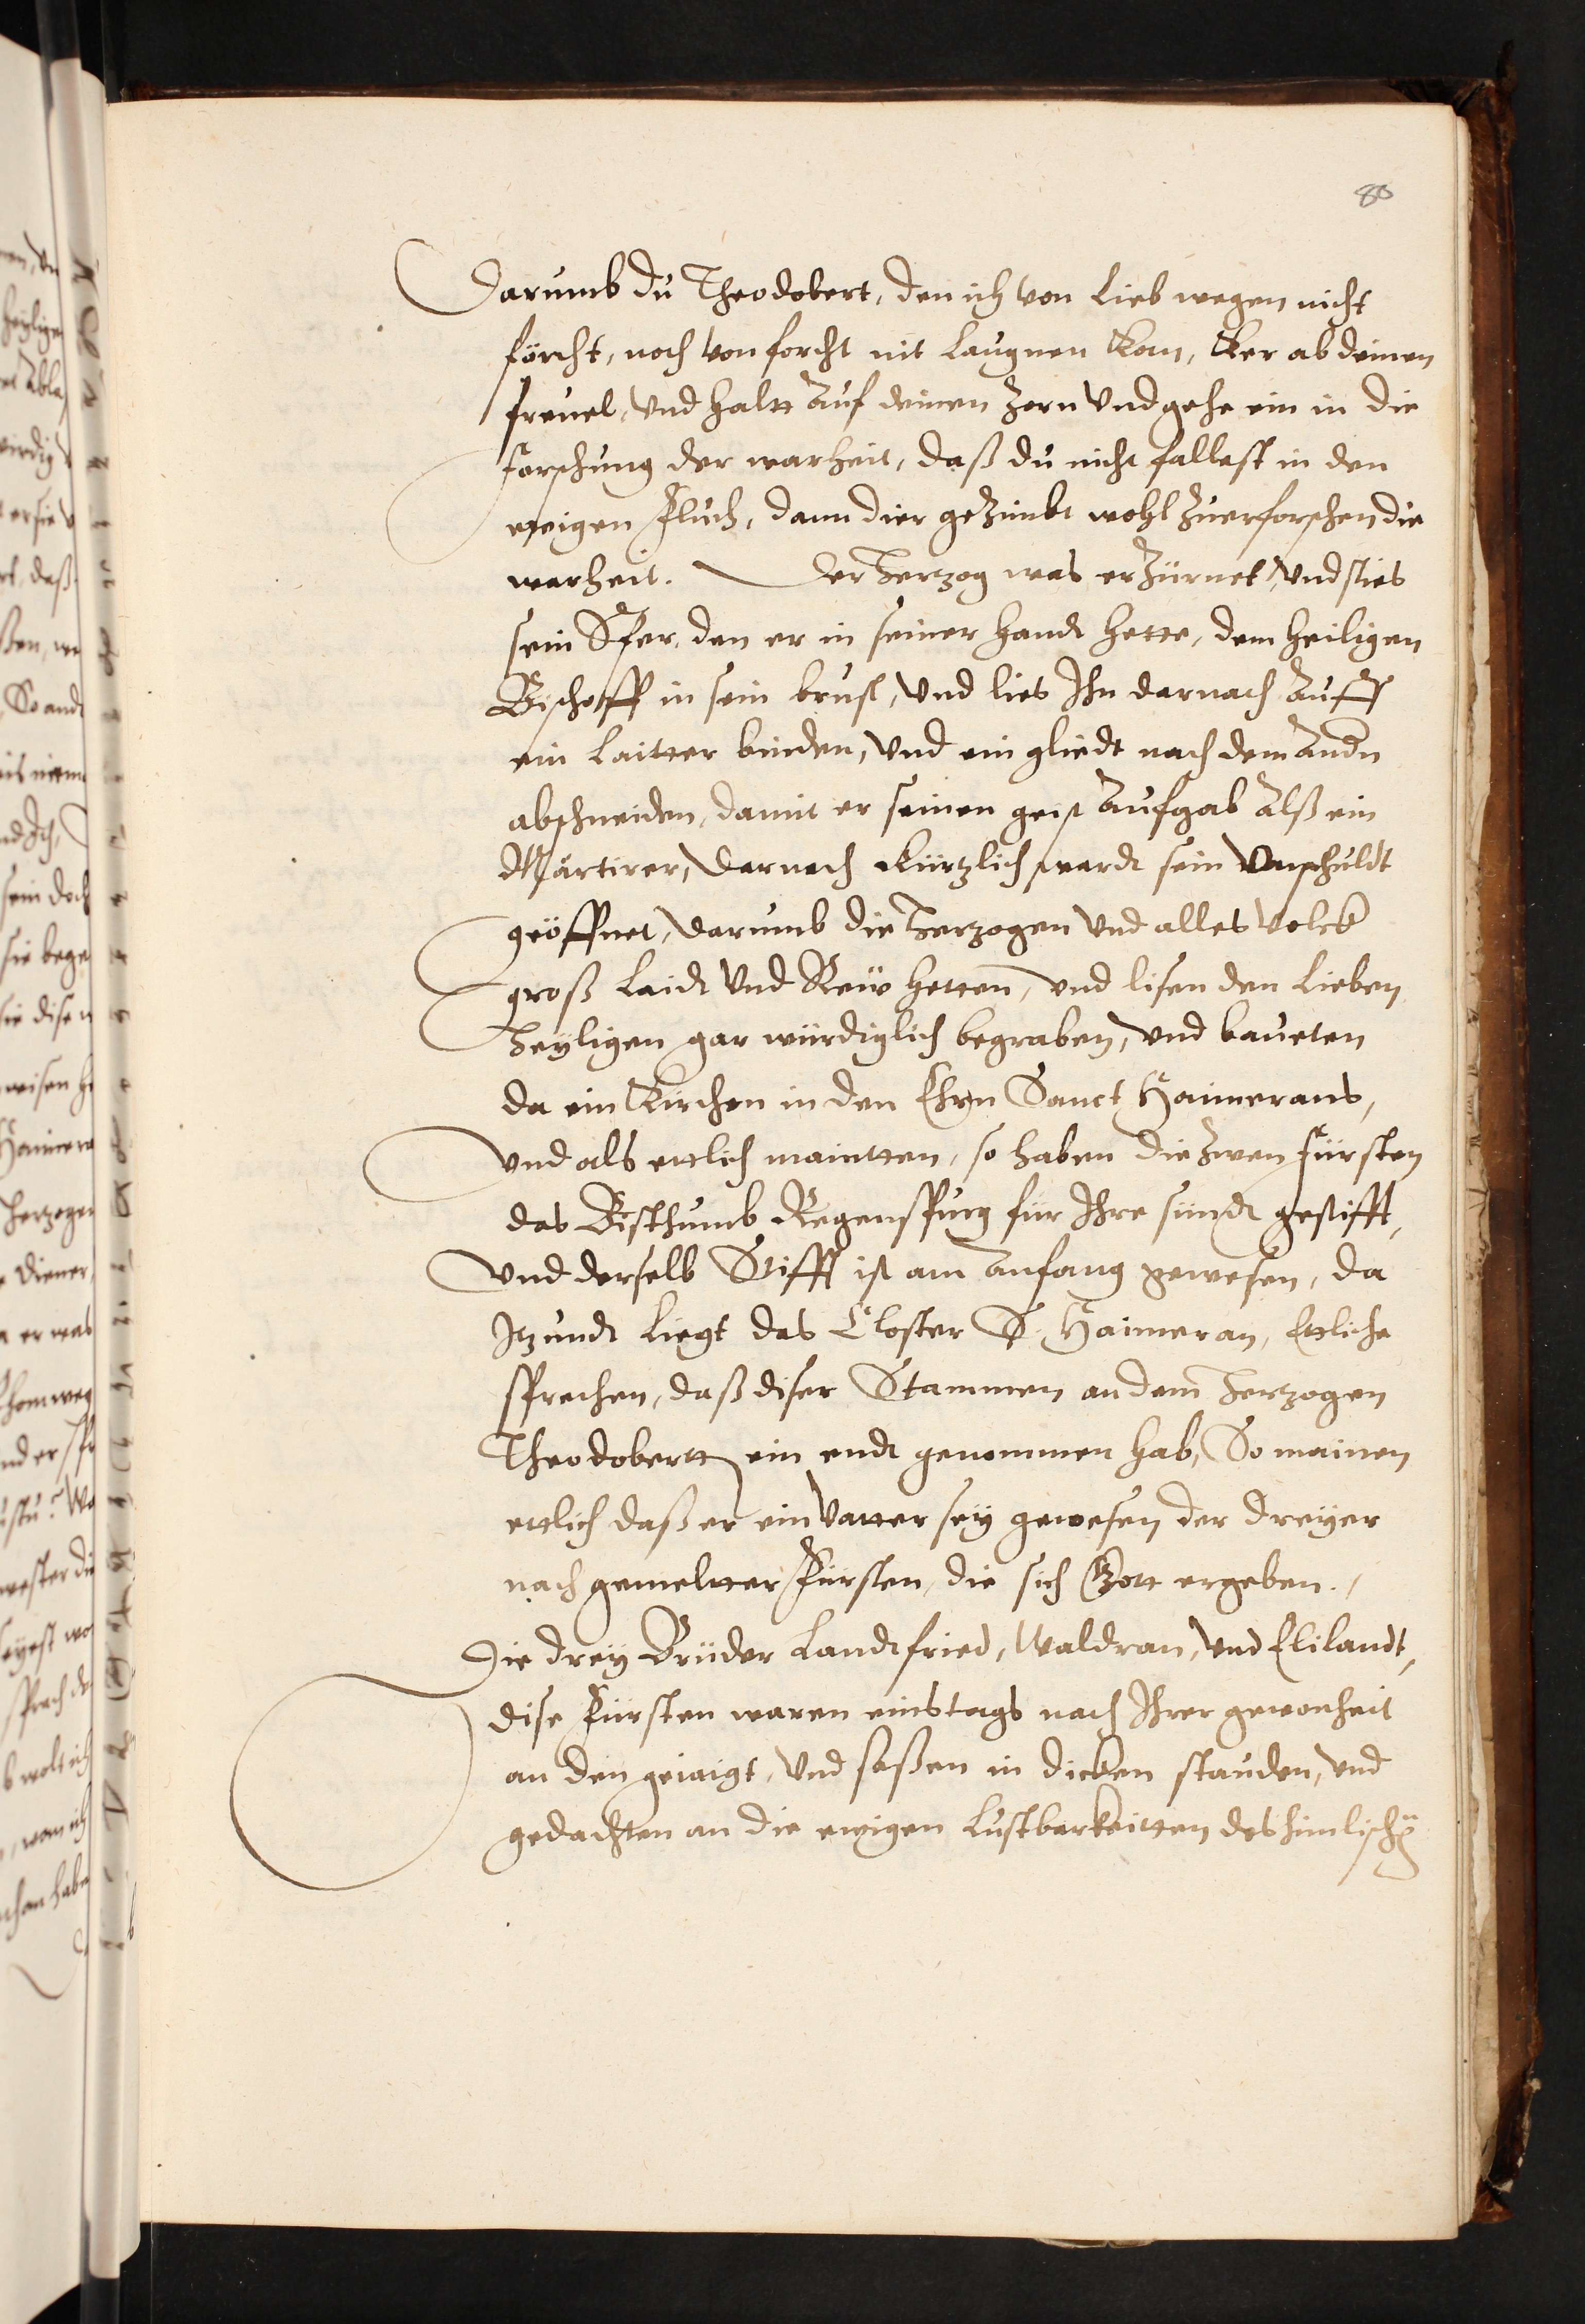 80
Darumb du Theodobert, den ich von Lieb wegen nicht
förcht, noch von forcht nit Laugnen kan, ker ab deinen
freuel, vnd haltt auf deinen Zorn vnd gehe ein in die
forschung der warheit, daß du nicht fallest in den
ewigen Fluch, dann dier geZimbt wohl Zuerforschen die
warheit. Der Herzog was erZürnet, vnd sties
sein Sper, den er in seiner handt hette, dem heiligen
Bischoff in sein brust, vnd lies Ihn darnach auff
ein Laitter binden, vnd ein gliedt nach dem andn
abschneiden, damit er seinen geist aufgab alß ein
Märtirer, darnach kürtzlich wardt sein vnschuldt
geöffnet, darumb die Herzogen vnd alles volck
groß Laidt vnd Reüw hetten, vnd lisen den Lieben
Heyligen gar würdiglich begraben, vnd baueten
da ein Kirchen in den Ehrn Sanct Haimerans,
vnd als ettlich maintten, so haben die Zwen fürsten
das Bisthumb Regenspurg für Ihre sündt gestifft,
vnd derselb Stifft ist am anfang gewesen, da
Itzundt Liegt das Closter S. Haimeran, Ettliche
sprechen, daß diser Stammen an dem Herzogen
Theodobertt ein endt genommen hab, So mainen
ettlich daß er ein Vatter sey gewesen der dreyer
nach gemeltter Fürsten, die sich Gott ergeben.
Die drey Brüder Landtfried, Waldran, vnd Elilandt,
dise Fürsten waren einstags nach Ihrer gewonheit
an den geiaigt, vnd saßen in dicken stauden, vnd
gedachten an die ewigen Lustbarkeitten des himlischn